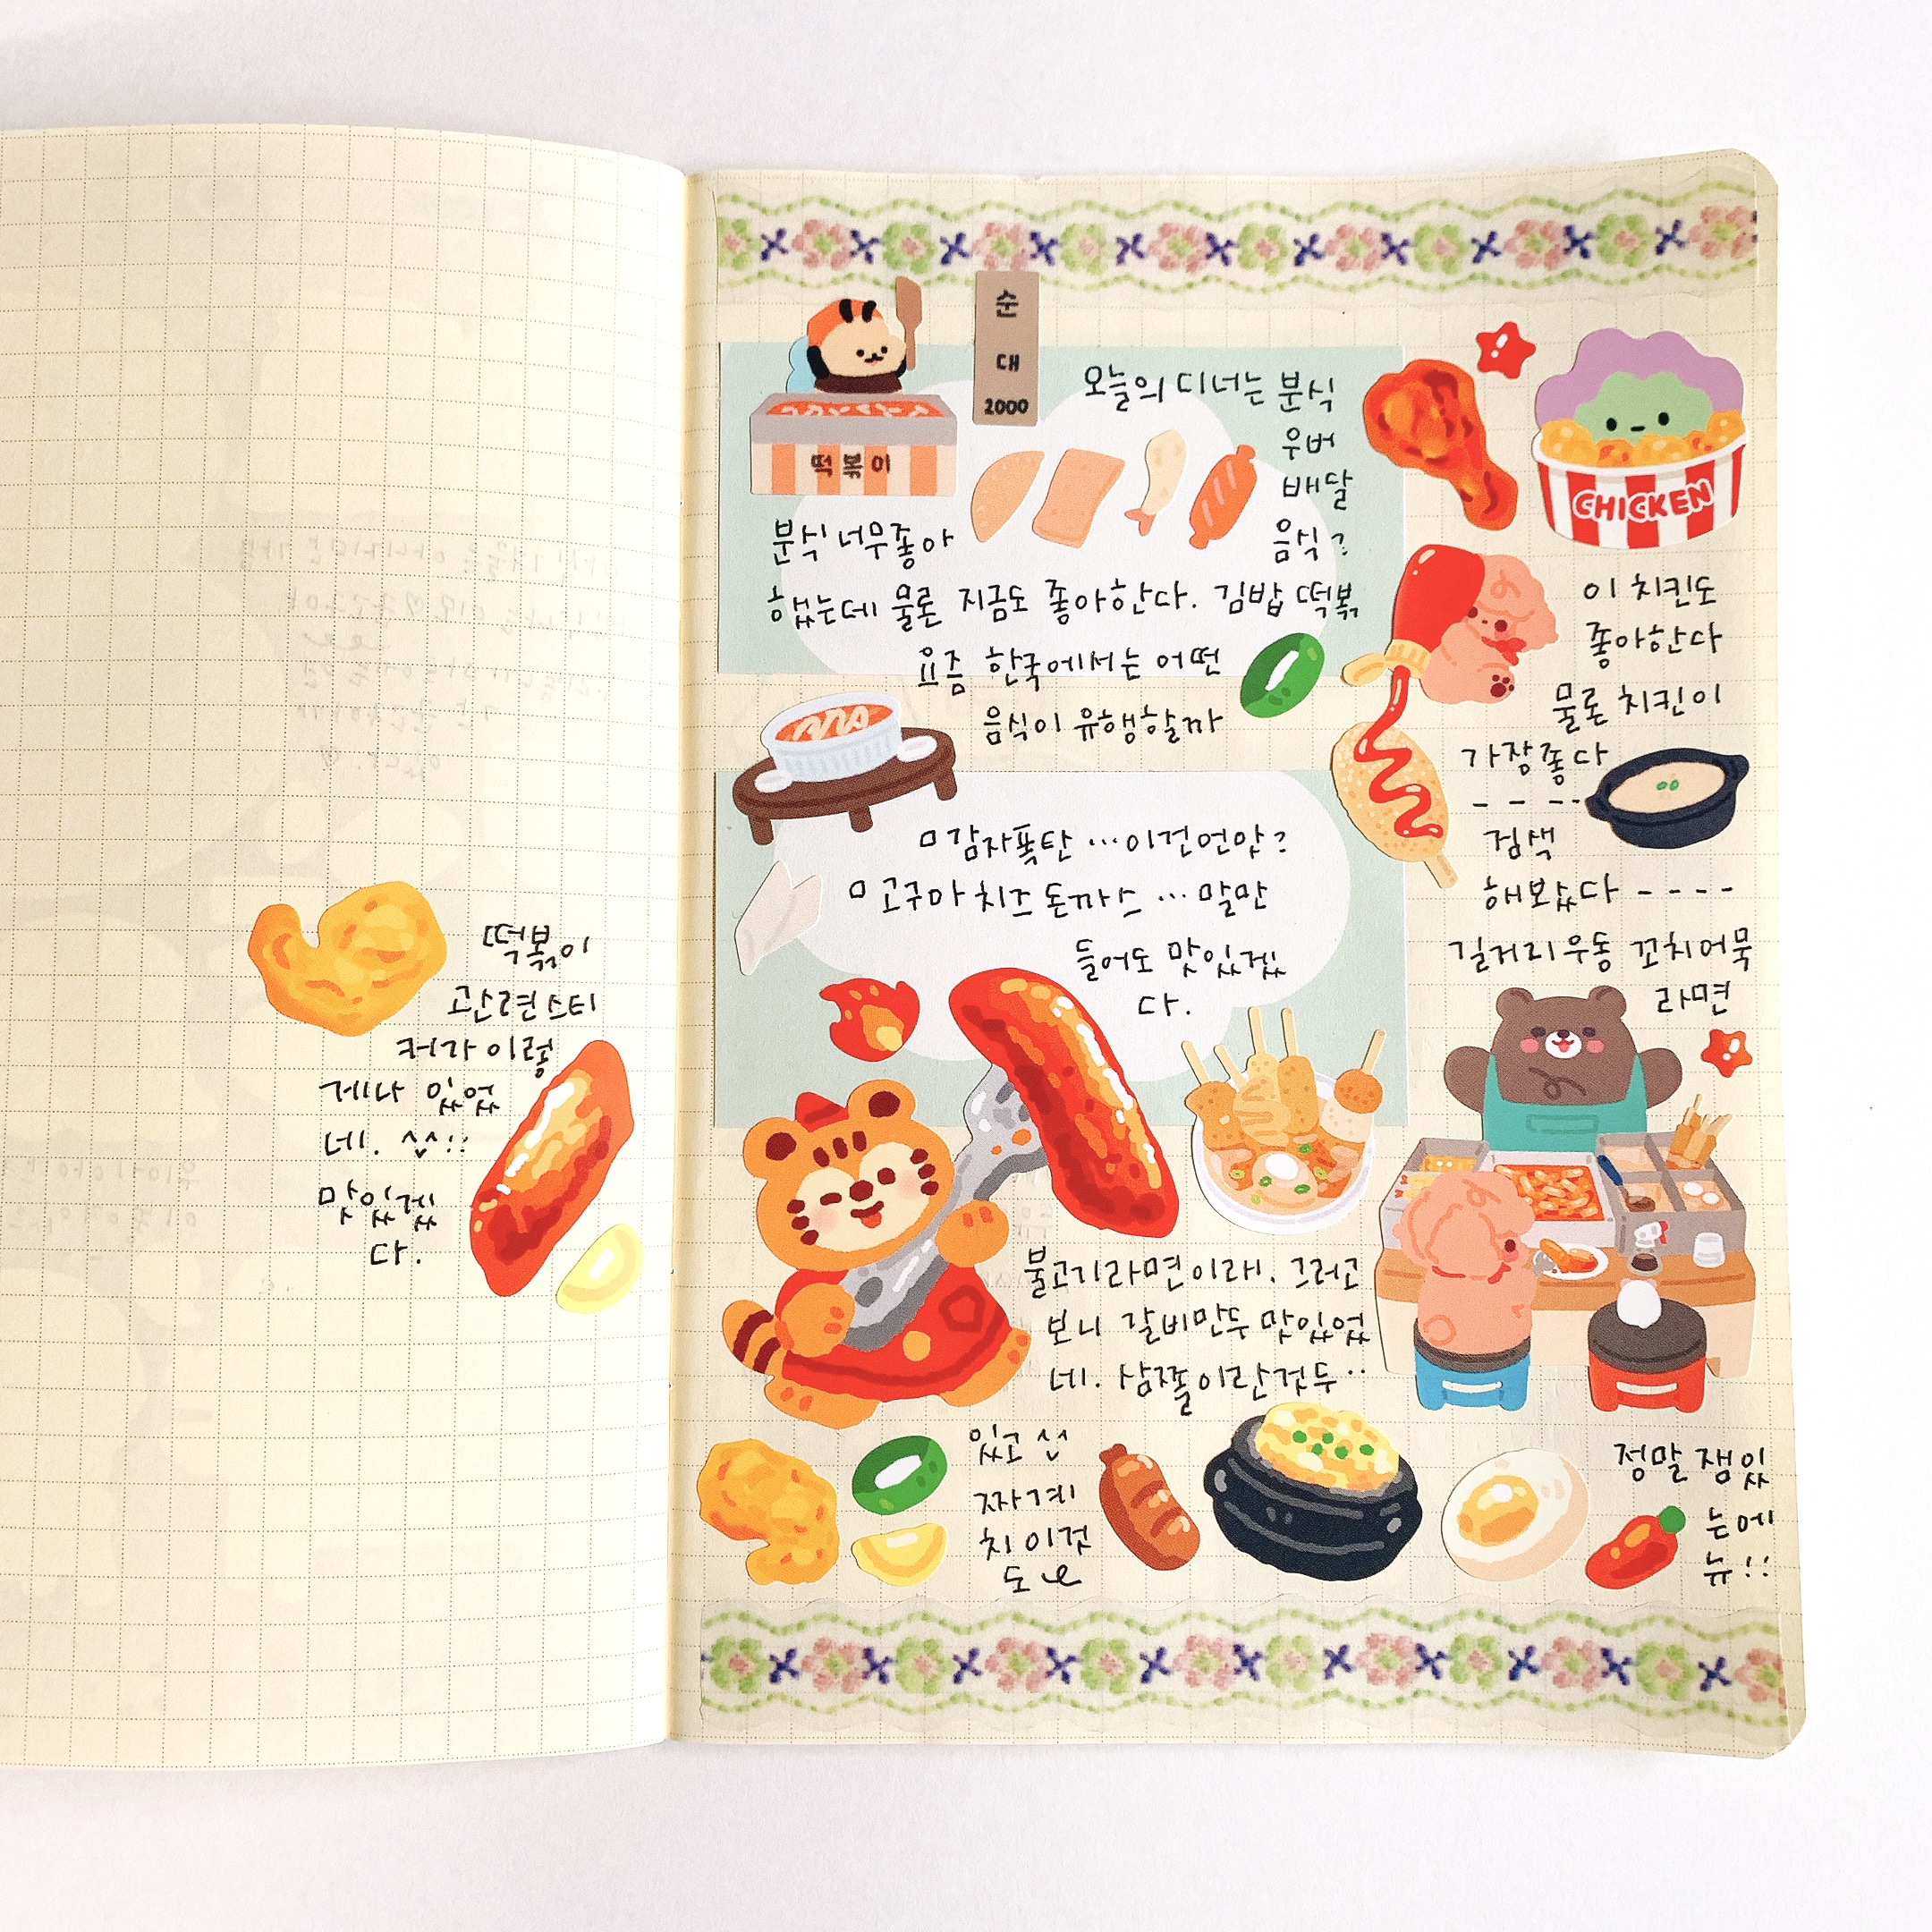 떡볶이
관련스티
커가 이렇
게나 있었
네. ^^!!
맛있겠
다.
순
대
2000
떡볶이
오늘의 디너는 분식
우버
배달
음식?
분식 너무좋아
했는데 물론 지금도 좋아한다. 김밥 떡볶
요즘 한국에서는 어떤
음식이 유행할까
감자폭탄 …이건언맛?
고구마 치즈 돈까스 … 말만
들어도 맛있겠
다.
CHICKEN
이 치킨도
좋아한다
물론 치킨이
가장좋다
- - - -
검색
해보았다 - - - -
길거리우동 꼬치어묵
라면
불고기라면이래. 그러고
보니 갈비만두 맛있었
네. 삼쫄이란것두..
있고
짜계
치 이것
도
정말 잼있
는에
뉴!!